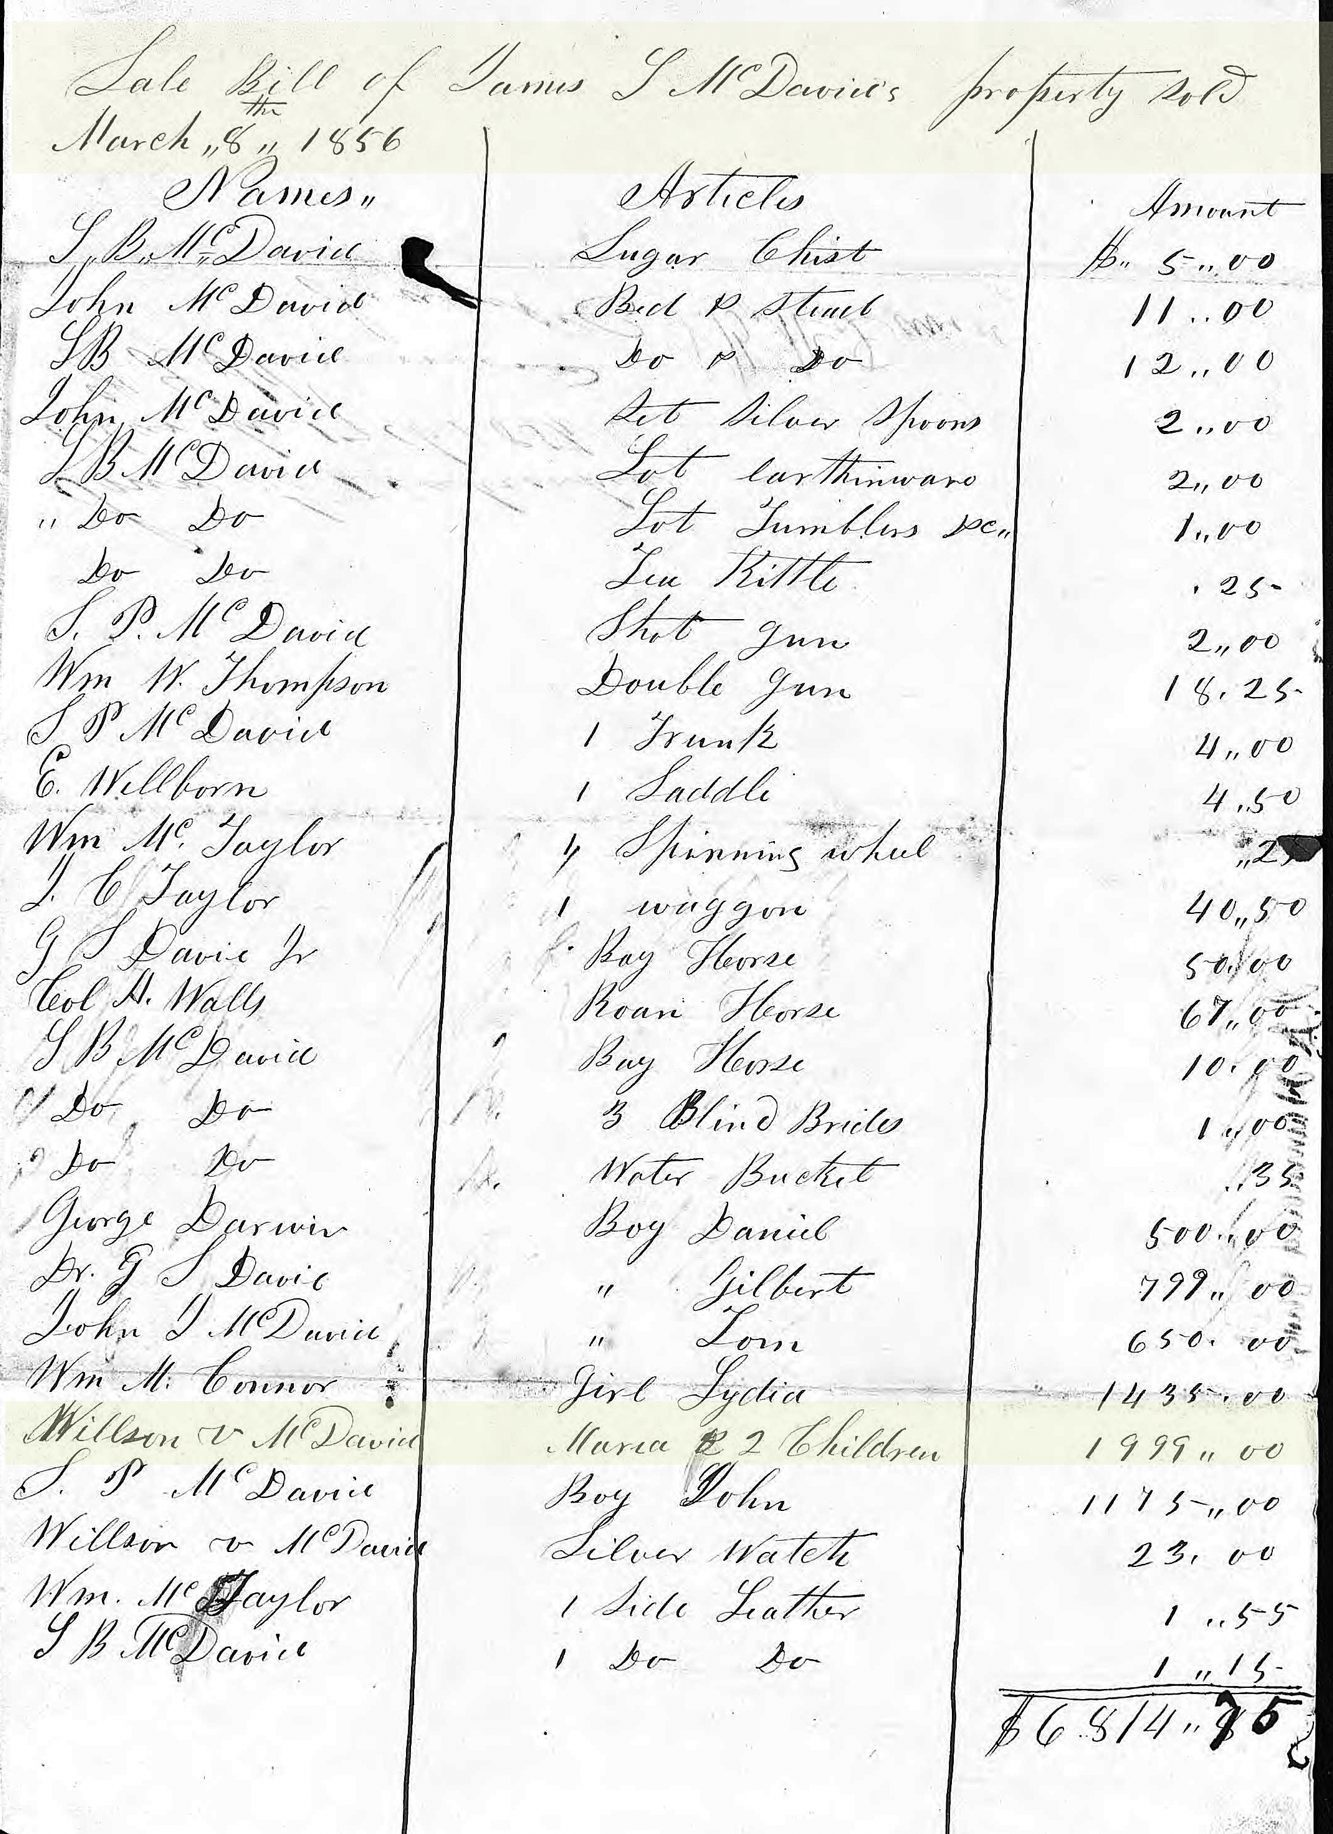 Sale Bill of James S McDavid's property sold
March "8th" 1856
Names" Articles Amount
S. B. McDavid Sugar Chist $" 5"00
John McDavid Bed & Stead 11..00
S B McDavid Do & Do 12"00
John McDavid Set Silver Spoons 2"00
S B McDavid Lot Earthinware 2"00
" Do Do Lot Tumblers &c" 1"00
Do Do Tea Kittle .25
S. P. McDavid Shot gun 2"00
Wm W. Thompson Double gun 18.25
S P McDavid 1 Trunk 4"00
E. Wellborn 1 Saddle 4.50
Wm Mc. Taylor 1 Spinning wheel "25
J. C Taylor 1 waggon 40"50
G S David Jr Bay Horse 50"00
Col A. Walls Roan Horse 67"00
S B McDavid Bay Horse 10.00
Do Do 3 Blind Bridles 1"00
Do Do Water Bucket .35
George Darwin Boy Daniel 500"00
Dr. G S David " Gilbert 799"00
John J McDavid " Tom 650.00
Wm M. Connor Girl Lydia 1435.00
Willson v McDavid Maria & 2 Children 1999"00
S. P McDavid Boy John 1175"00
Willson v McDavid Silver Watch 23.00
Wm. Mc Taylor 1 Side Leather 1"55
S B McDavid 1 Do Do 1"15
$6814"75